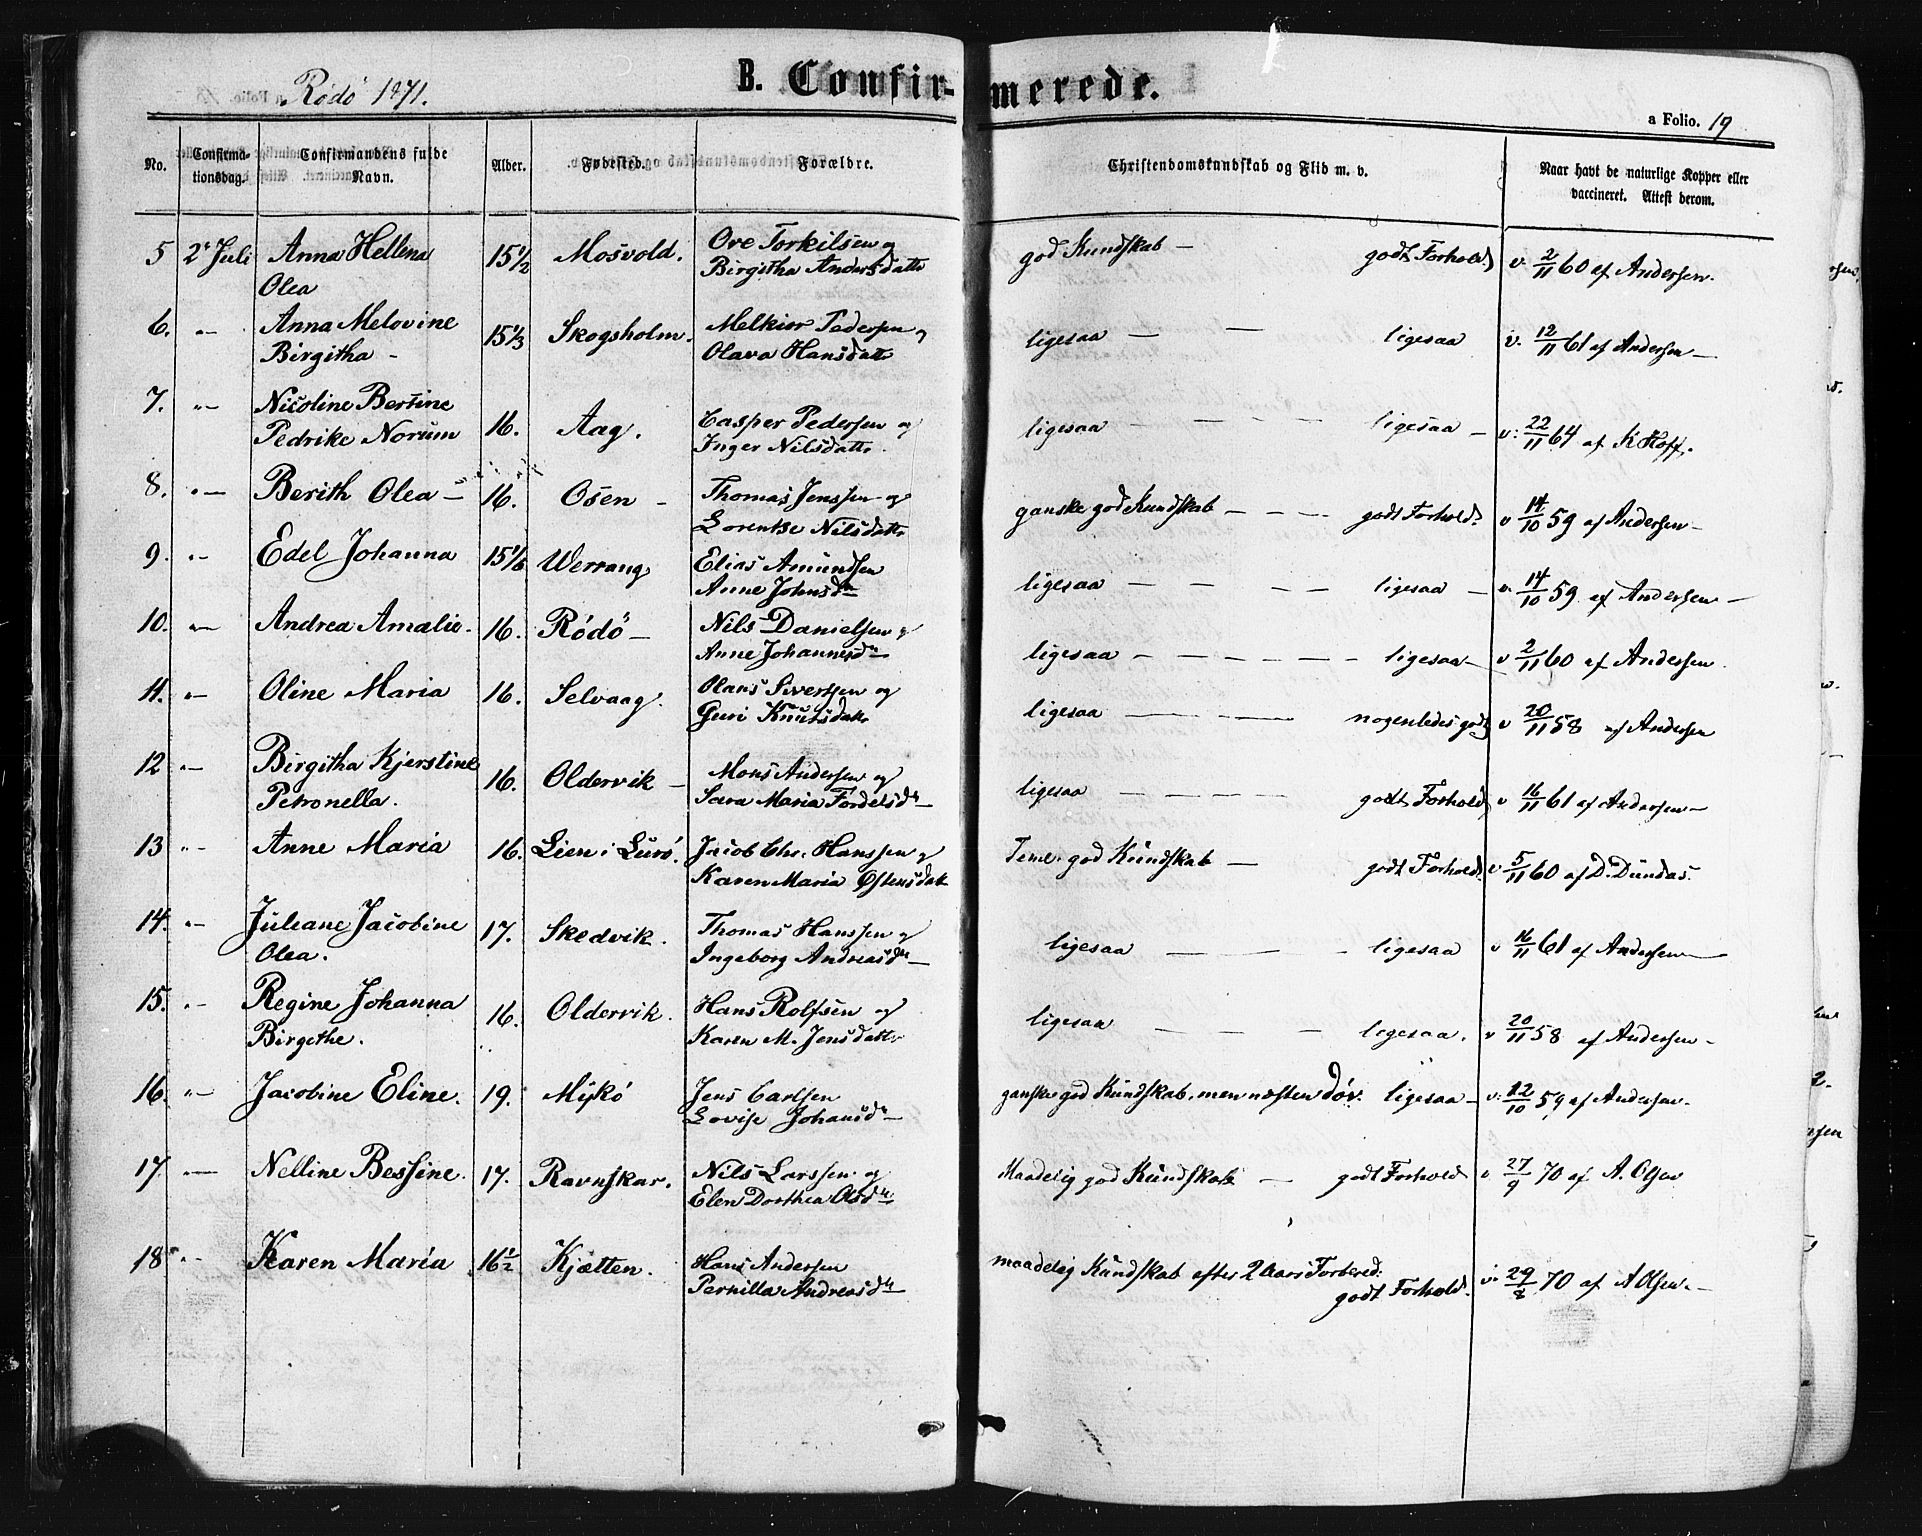 Rödö 1871.
B. Confir-merede.
a Folio. 19
No.
Confirma-
tionsdag.
Confirmandens fulde
Navn.
Alder.
Fødested.
Forældre.
Christendomskundskab og Flid m. v.
Naar havt de naturlige Kopper eller
vaccineret. Attest derom.
5 2 Juli Anna Hellena 15 1/2 Mosvold. Ove Torkilsen og god Kundskab — godt Forhold v. 2/11 60 af Andersen.
Olea Birgitha Andersdattr
6. „— Anna Melovine 15 1/3 Skogsholm. Melkior Pedersen og ligesaa — — ligesaa v. 12/11 61 af Andersen —
Birgitha — Olava Hansdattr
7. „— Nicoline Bersine 16. Aag. Casper Pedersen og ligesaa — — — — ligesaa — v: 22/11 64 af K Hoff.
Pedrike Norum Inger Nilsdattr.
8. „— Berith Olea — 16. Osen — Thomas Jenssen og ganske god Kundskab — — — godt Forhold. v 14/10 59 af Andersen —
Lorentse Nilsdattr
9. „— Edel Johanna 15 1/6 Werrang Elias Amundsen ligesaa — — — — ligesaa — v. 14/10 59 af Andersen —
Anne Johnsdtr
10. „— Andrea Amalie. 16. Rödö — Nils Danielsen og ligesaa — — — — — — ligesaa — v 2/11 60 af Andersen.
Anne Johannesdtr
11. „— Oline Maria 16. Selvaag. Olaus Sivertsen og ligesaa — — — — nogenledes godt v 20/11 58 af Andersen
Guri Knutsdattr
12 „— Birgitha Kjerstine 16. Oldervik — Mons Andersen og ligesaa — — — — godt Forhold v 16/11 61 af Andersen —
Petronella. Sara Maria Fordelsdtr
13 „— Anne Maria 16. Lien i Lurö. Jacob Chr. Hanssen og Teml. god Kundskab — godt Forhold. v 5/11 60 af D. Dundas.
Karen Maria Østensdatr
14. „— Juliane Jacobine 17. Skedvik. Thomas Hanssen og ligesaa — — — ligesaa v 16/11 61 af Andersen —
Olea. Ingeborg Andreasdtr
15. „— Regine Johanna 16. Oldervik. Hans Rolfsen og ligesaa — — — ligesaa. v 20/11 58 af Andersen —
Birgithe. Karen M. Jensdattr
16. „— Jacobine Eline. 19. Mykö Jens Carlsen ganske god Kundskab, men næsten døv. ligesaa — v: 12/10 59 af Andersen.
Lovise Johansdtr
17 — Nelline Bessine. 17. Ravnskar. Nils Larssen og Maadelig god Kundskab — godt Forhold v 27/9 70 af A. Olsen
Elen Dorthea Olsdtr
18 „— Karen Maria 16 1/2 Kjætten. Hans Andersen maadelig Kundskab efter 2 Aars Forbered: v. 29/8 70 af A Olsen. —
Pernilla Andreasdtr godt Forhold.